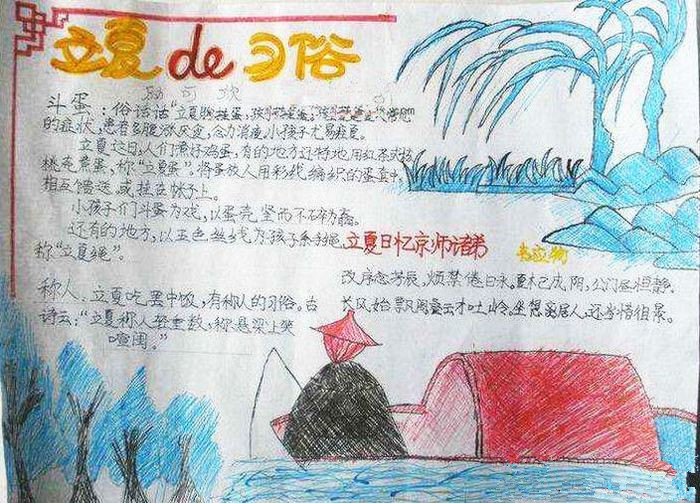 立夏de习俗
斗蛋：俗话话“立夏胸挂蛋，孩子
的症状，患者多腹涨厌食，乏力消瘦，小孩子尤易
立夏这日，人们煮好鸡蛋，有的地方还特地用红茶或
桃壳煮蛋，称“立夏蛋”。将蛋放入用彩线编织的蛋套中，
相互馈送或挂在帐子上。
小孩子们斗蛋为戏，以蛋壳坚而不碎为赢。
还有的地方，以五色丝线为孩子系绳，
称“立夏绳”。
立夏日忆京师诸弟
韦应物
改序念芳辰，烦襟倦日永。夏木已成阴，公门昼恒静。
长风始飘阁，叠云才吐岭。坐想离居人，还当惜徂景。
称人、立夏吃罢中饭，有称人的习俗。古
诗云：“立夏称人轻重数，称悬梁上笑
喧闺。”